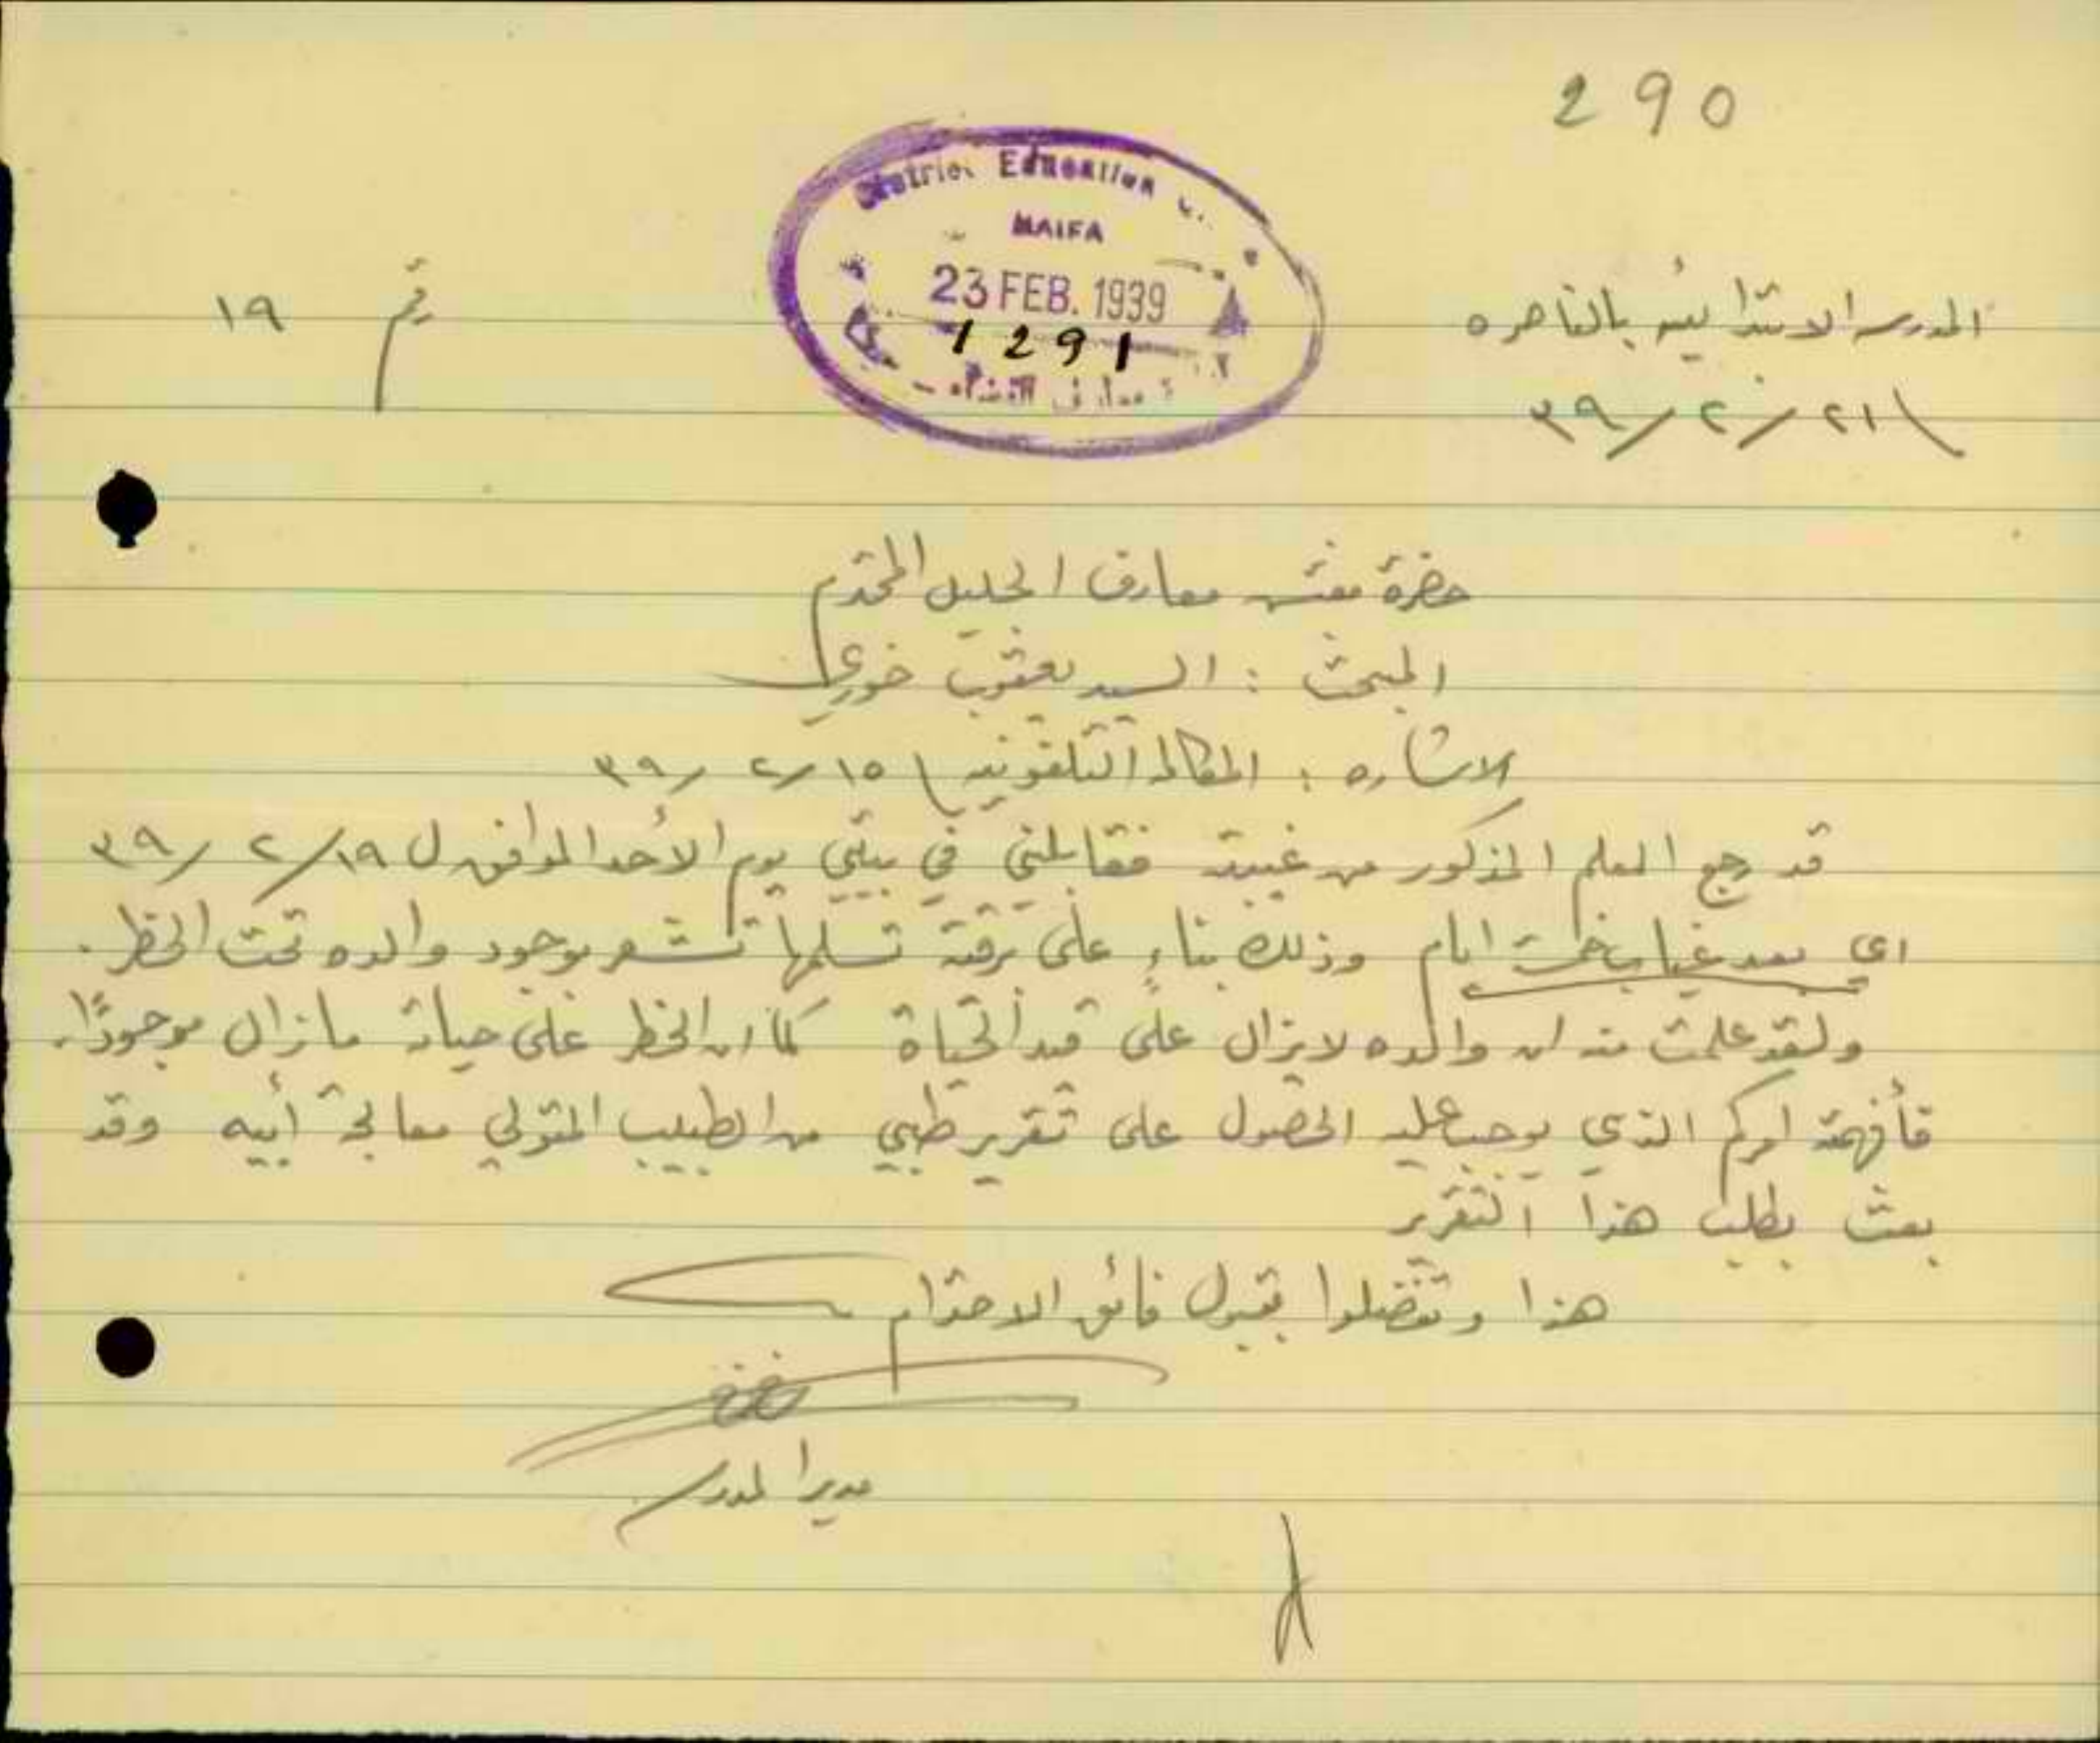 290
District Education
HAIFA
23 FEB. 1939
1291
معارف القضاء
المدرسه الابتدائيه بالناصره
رقم ١٩
٢١ / ٢ / ٣٩
حضرة مفتش معارف الجليل المحترم
المبحث : السيد يعقوب خوري
الاشاره : المكالمة التلفونيه ١٥ / ٢ / ٣٩
قد رجع المعلم المذكور من غيبته فقابلني في بيتي يوم الأحد الموافق ل ١٩ / ٢ / ٣٩
اي بعد غياب خمسة ايام وذلك بناءٍ على برقية تسلمها تشعر بوجود والده تحت الخطر.
ولقد علمت منه ان والده لا يزال على قيد الحياة كما ان الخطر على حياته ما زال موجودًا.
فأفهمته امركم الذي يوجب عليه الحصول على تقرير طبي من الطبيب المتولي معالجة أبيه وقد
بعث بطلب هذا التقرير
هذا وتفضلوا بقبول فائق الاحترام
مدير المدرسه